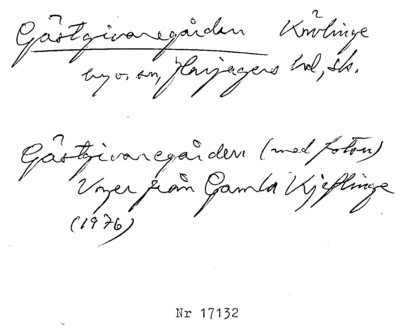 Gästgivaregården Kävlinge
by o. sn, Harjagers hd, sk.
Gästgivaregården (med foton)
Vyer från Gamla Kjeflinge
(1976)
Nr 17132